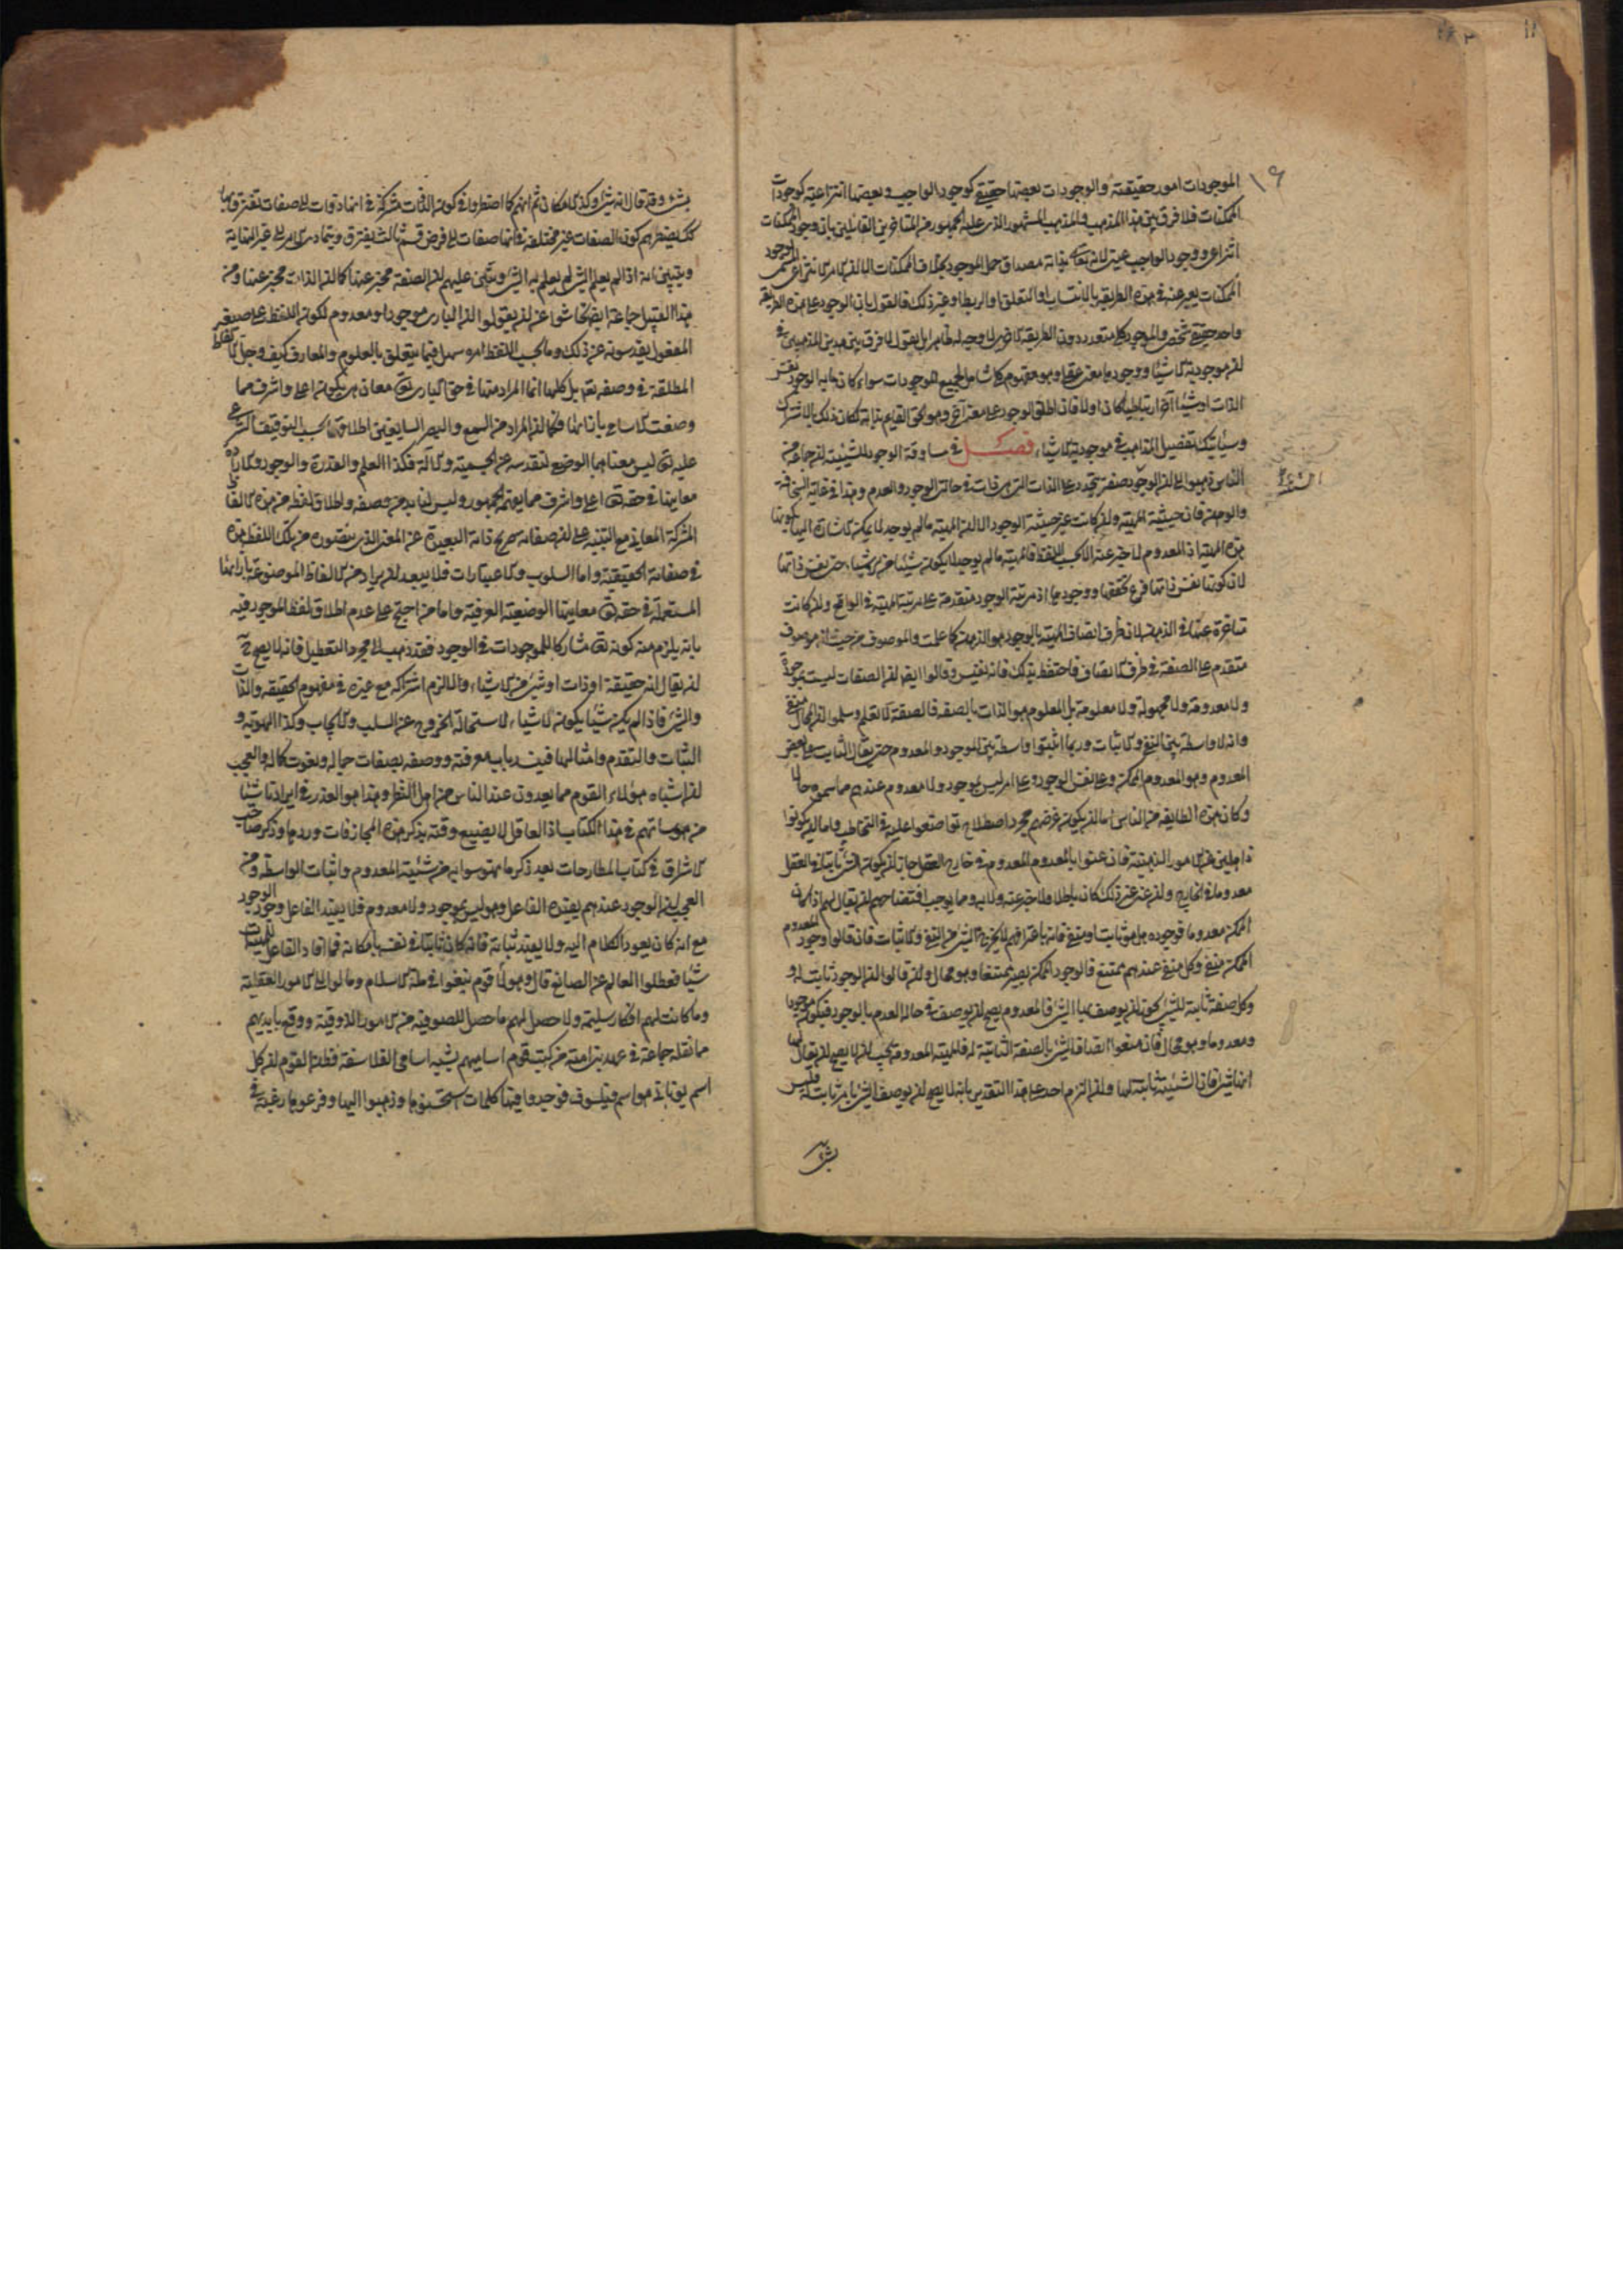 ١٩
الموجودات امور حقيقية والوجودات بعضها حقيقي كوجود الواجب وبعضها انتزاعية كوجودات
الممكنات فلا فرق بين هذا المذهب والمذهب المشهور الذي عليه الجمهور من المتاخرين القائلين بان وجود الممكنات
انتزاعي ووجود الواجب عينه لانه تعالى بذاته مصداق حمل الموجود بخلاف الممكنات الا ان الامر الانتزاعي المسمى بوجود
الممكنات يعبر عنه في هذه الطريقة بالانتساب او التعلق او الربط او غير ذلك فالقول بان الوجود على هذه الطريقة
واحد حقيقي شخصي والموجود كلي متعدد دون الطريقة الاخرى لا وجه له ظاهرا بل نقول لا فرق بين هذين المذهبين في
ان موجودية الاشياء ووجودها معنى عقلي ومفهوم كلي شامل لجميع الموجودات سواء كان ما به الوجود نفس
الذات او شيئا آخر ارتباطيا كان او لا فان اطلق الوجود على معنى آخر وهو الحق القائم بذاته لكان ذلك بالاشتراك
وسياتيك تفصيل المذاهب في موجودية الاشياء فصل في مساوقة الوجود للشيئية ان جماعة من
الناس ذهبوا الى ان الوجود صفة يتجدد على الذات التي هي ذات في حالتي الوجود والعدم وهذا في غاية السخافة
والوهن فان حيثية المهية وان كانت غير حيثية الوجود الا ان المهية ما لم يوجد لا يمكن الاشارة اليها بكونها
هذه المهية اذ المعدوم لا يخبر عنه الا بحسب اللفظ فالمهية ما لم يوجد لا يكون شيئا من الاشياء حتى نفس ذاتها
لان كونها نفس ذاتها فرع تحققها ووجودها اذ مرتبة الوجود متقدمة على مرتبة المهية في الواقع وان كانت
متاخرة عنها في الذهن لان ظرف اتصاف المهية بالوجود هو الذهن كما علمت والموصوف من حيث انه موصوف
متقدم على الصفة في ظرف الاتصاف فاحتفظ بذلك فانه نفيس وقالوا ايضا ان الصفات ليست بموجودة
ولا معدومة ولا مجهولة ولا معلومة بل المعلوم هو الذات بالصفة فالصفة لا تعلم وسلموا ان المحال منفي
وانه لا واسطة بين النفي والاثبات وربما اثبتوا واسطة بين الموجود والمعدوم حتى يقال الثابت على بعض
المعدوم وهو المعدوم الممكن وعلى نفس الوجود وعلى امر ليس بموجود ولا معدوم عندهم مما سموه حالا
وكان هذه الطايفة من الناس اما ان يكون غرضهم مجرد اصطلاح تواضعوا عليه في التخاطب واما ان يكونوا
ذاهلين عن الامور الذهنية فان عنوا بالمعدوم المعدوم في خارج العقل جاز ان يكون الشئ ثابتا في العقل
معدوما في الخارج وان عنوا غير ذلك كان باطلا ولا خبر عنه ولا به ومما يوجب افتضاحهم ان يقال لهم اذا كان
الممكن معدوما فوجوده هل هو ثابت او منفي فانه باعترافهم لا يخرج الشئ من النفي والاثبات فان قالوا وجود المعدوم
الممكن منفي وكل منفي عندهم ممتنع فالوجود الممكن يصير ممتنعا وهو محال وان قالوا ان الوجود ثابت له و
وكل صفة ثابتة للشئ يجوز ان يوصف بها الشئ فالمعدوم يصح ان يوصف في حالة العدم بالوجود فيكون موجودا
ومعدوما وهو محال فان منعوا اتصاف الشئ بالصفة الثابتة له فالمهية المعدومة يجب ان لا يصح ان يقال لها
انها شئ فان الشيئية ثابتة لها وان التزم احد على هذا التقدير بانه لا يصح ان يوصف الشئ بامر ثابت له فليس
بشئ
بشئ وقد قال انه شئ وكذا الامكان ثم انهم كما اضطروا في كون الذات مشتركة في انها ذوات الى صفات تفترق بها
كك يضطرهم كون الصفات غير مختلفة في انها صفات الى فرض قسم ثالث يفترق ويتمادى الامر الى غير النهاية
ويتبين انه اذا لم يعلم الشئ لم يعلم به الشئ ويبتنى عليهم ان الصفة مخبر عنها كما ان الذات مخبر عنها ومن
هذا القبيل جماعة ايضا تحاشوا عن ان يقولوا ان الباري موجود او معدوم لكون اللفظ على صيغة
المفعول يقدسونه عن ذلك وما يجب اللفظ امره سهل فيما يتعلق بالعلوم والمعارف كيف وجل الالفاظ
المطلقة في وصفه تعالى بل كلها انما المراد منها في حق الباري تعالى معان هي يكون اعلى واشرف مما
وضعت الاسامي بازائها فكما ان المراد من السمع والبصر السايغين اطلاقهما بحسب التوقيف الشرعي
عليه تعالى ليس معناهما الوضعي لتقدسه عن الجسمية والآلة فكذا العلم والقدرة والوجود والارادة
معانيها في حقه تعالى اعلى واشرف مما يفهمه الجمهور وليس لنا بد من وصفه واطلاق لفظ من هذه الالفاظ
المشتركة المعاني مع التنبيه على ان صفاته صريح ذاته البعيدة عن المعنى الذي يتصوره من تلك اللفظ هذه
في صفاته الحقيقية واما السلوب والاعتبارات فلا يبعد ان يراد من الالفاظ الموضوعة بازائها
المستعملة في حقه تعالى معانيها الوضعية العرفية واما من احتج على عدم اطلاق لفظ الموجود فيه
بانه يلزم منه كونه تعالى مشاركا للموجودات في الوجود فقد ذهب الى مجرد التعطيل فانه لا يصح ح
ان يقال انه حقيقة او ذات او شئ من الاشياء والا لزم اشتراكه مع غيره في مفهوم الحقيقة والذات
والشئ فاذا لم يكن شيئا يكون لا شيئا لاستحالة الخروج عن السلب والايجاب وكذا الهوية و
الثبات والتقدم وامثالها فينسد باب معرفته ووصفه بصفات جماله ونعوت كماله والعجب
ان اشباه هؤلاء القوم مما يعدون عند الناس من اهل النظر وهذا هو العذر في ايرادنا شيئا
من هوساتهم في هذا الكتاب اذ العاقل لا يضيع وقته بذكر هذه المجازفات وردها وذكر صاحب
الاشراق في كتاب المطارحات بعد ذكر ما تهوسوا به من شيئية المعدوم واثبات الواسطة ومن
العجب ان الوجود عندهم يفيده الفاعل وهو ليس بموجود ولا معدوم فلا يفيد الفاعل وجود الوجود
مع انه كان يعود الكلام اليه ولا يفيد ثباته فانه كان ثابتا في نفسه بامكانه فما افاد الفاعل للمهيات
شيئا فعطلوا العالم عن الصانع قال وهولاء قوم نبغوا في ملة الاسلام ومالوا الى الامور العقلية
وما كانت لهم افكار سليمة ولا حصل لهم ما حصل للصوفية من الامور الذوقية ووقع بايديهم
مما نقله جماعة في عهد بني امية من كتب قوم اساميهم يشبه اسامي الفلاسفة فظن القوم ان كل
اسم يوناني هو اسم فيلسوف فوجدوا فيها كلمات استحسنوها وذهبوا اليها وفرعوها رغبة في